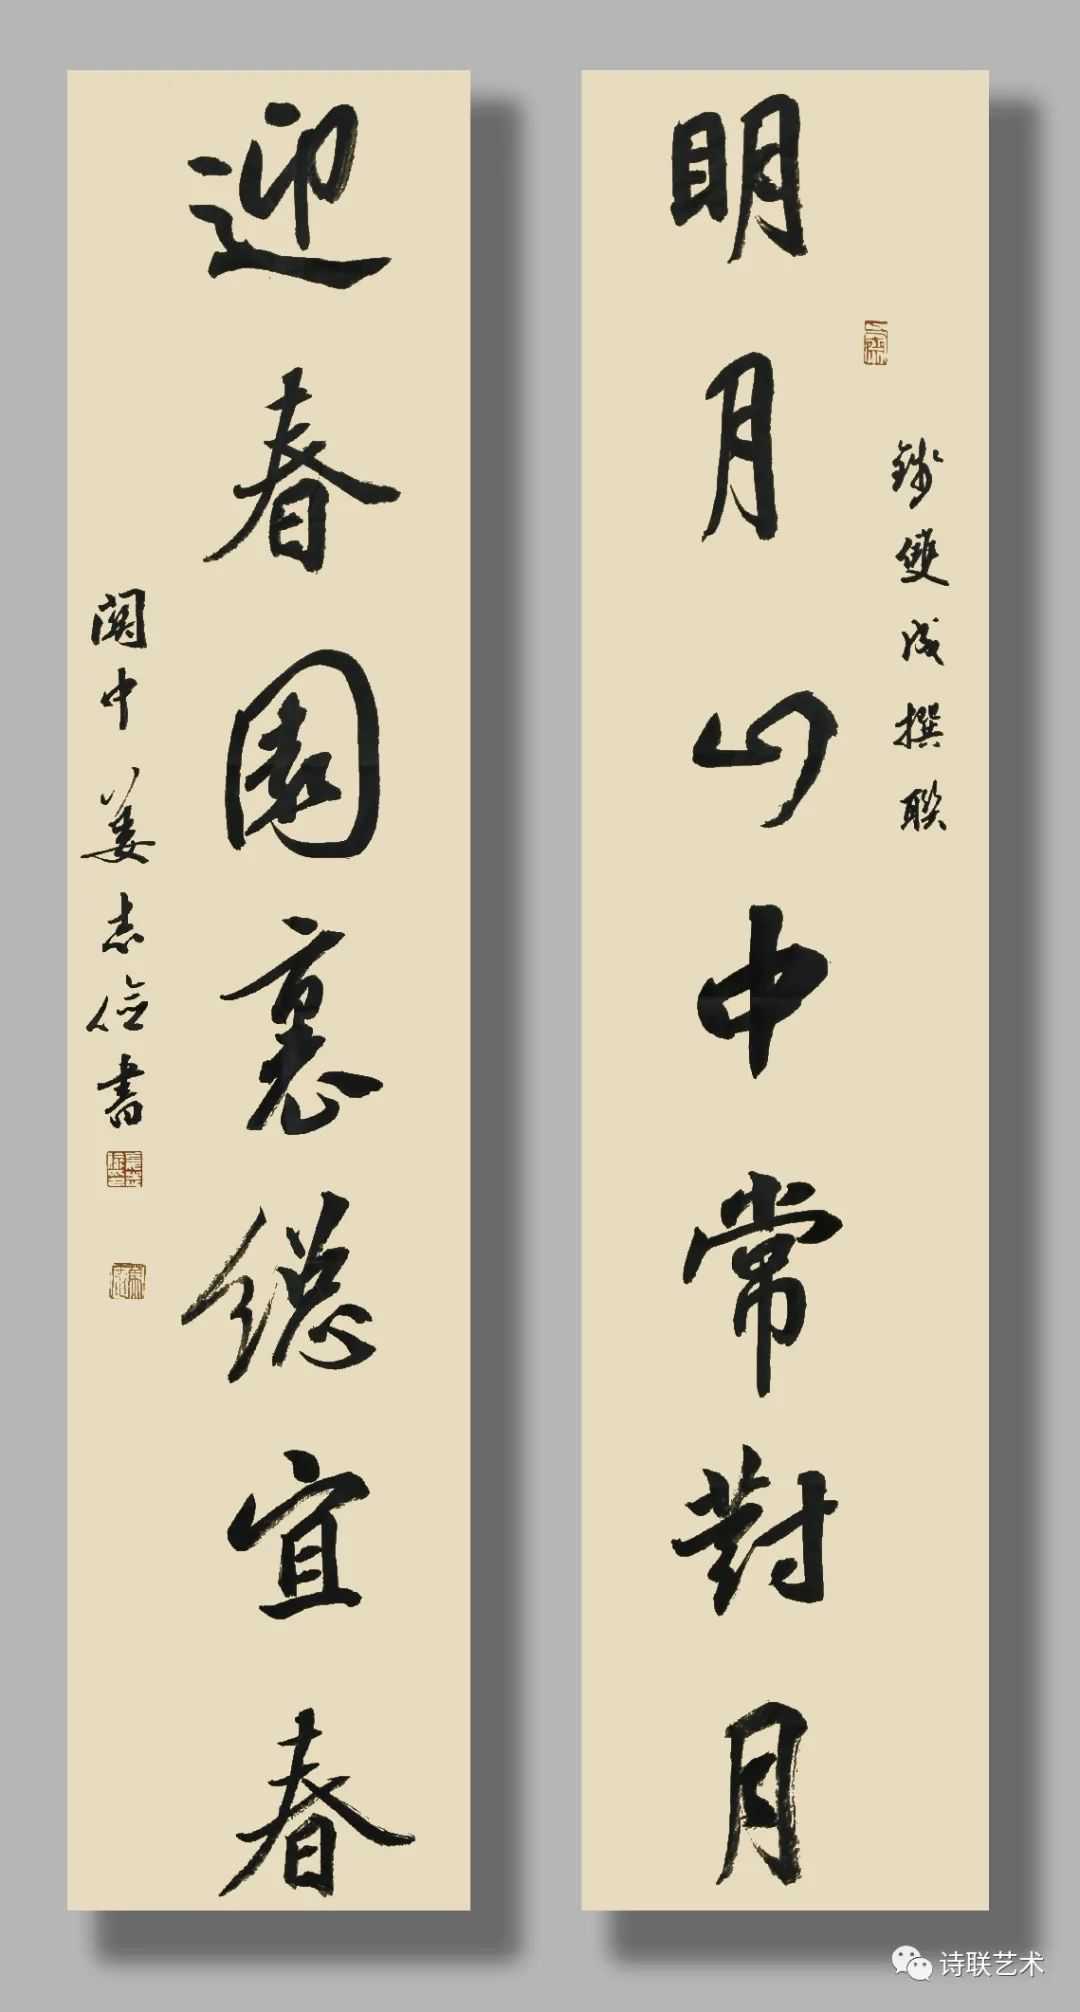 明月山中常對月
錢雙成撰聯
迎春園裏總宜春
閬中姜志儉書
诗联艺术